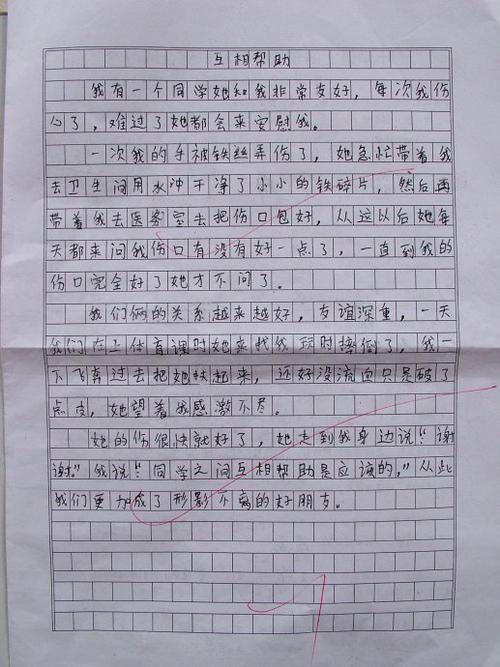 互相帮助
我有一个同学她和我非常友好，每次我伤
心了，难过了她都会来安慰我。
一次我的手被铁丝弄伤了，她急忙带着我
去卫生间用水冲干净了小小的铁碎片，然后再
带着我去医务室去把伤口包好，从这以后她每
天都来问我伤口有没有好一点了，一直到我的
伤口完全好了她才不问了。
我们俩的关系越来越好，友谊深重，一天
我们在上体育课时她来找我玩时摔倒了，我一
下飞奔过去把她扶起来，还好没流血只是破了
点皮，她望着我感激不尽。
她的伤很快就好了，她走到我身边说“谢
谢”我说“同学之间互相帮助是应该的，”从此
我们更加成了形影不离的好朋友。